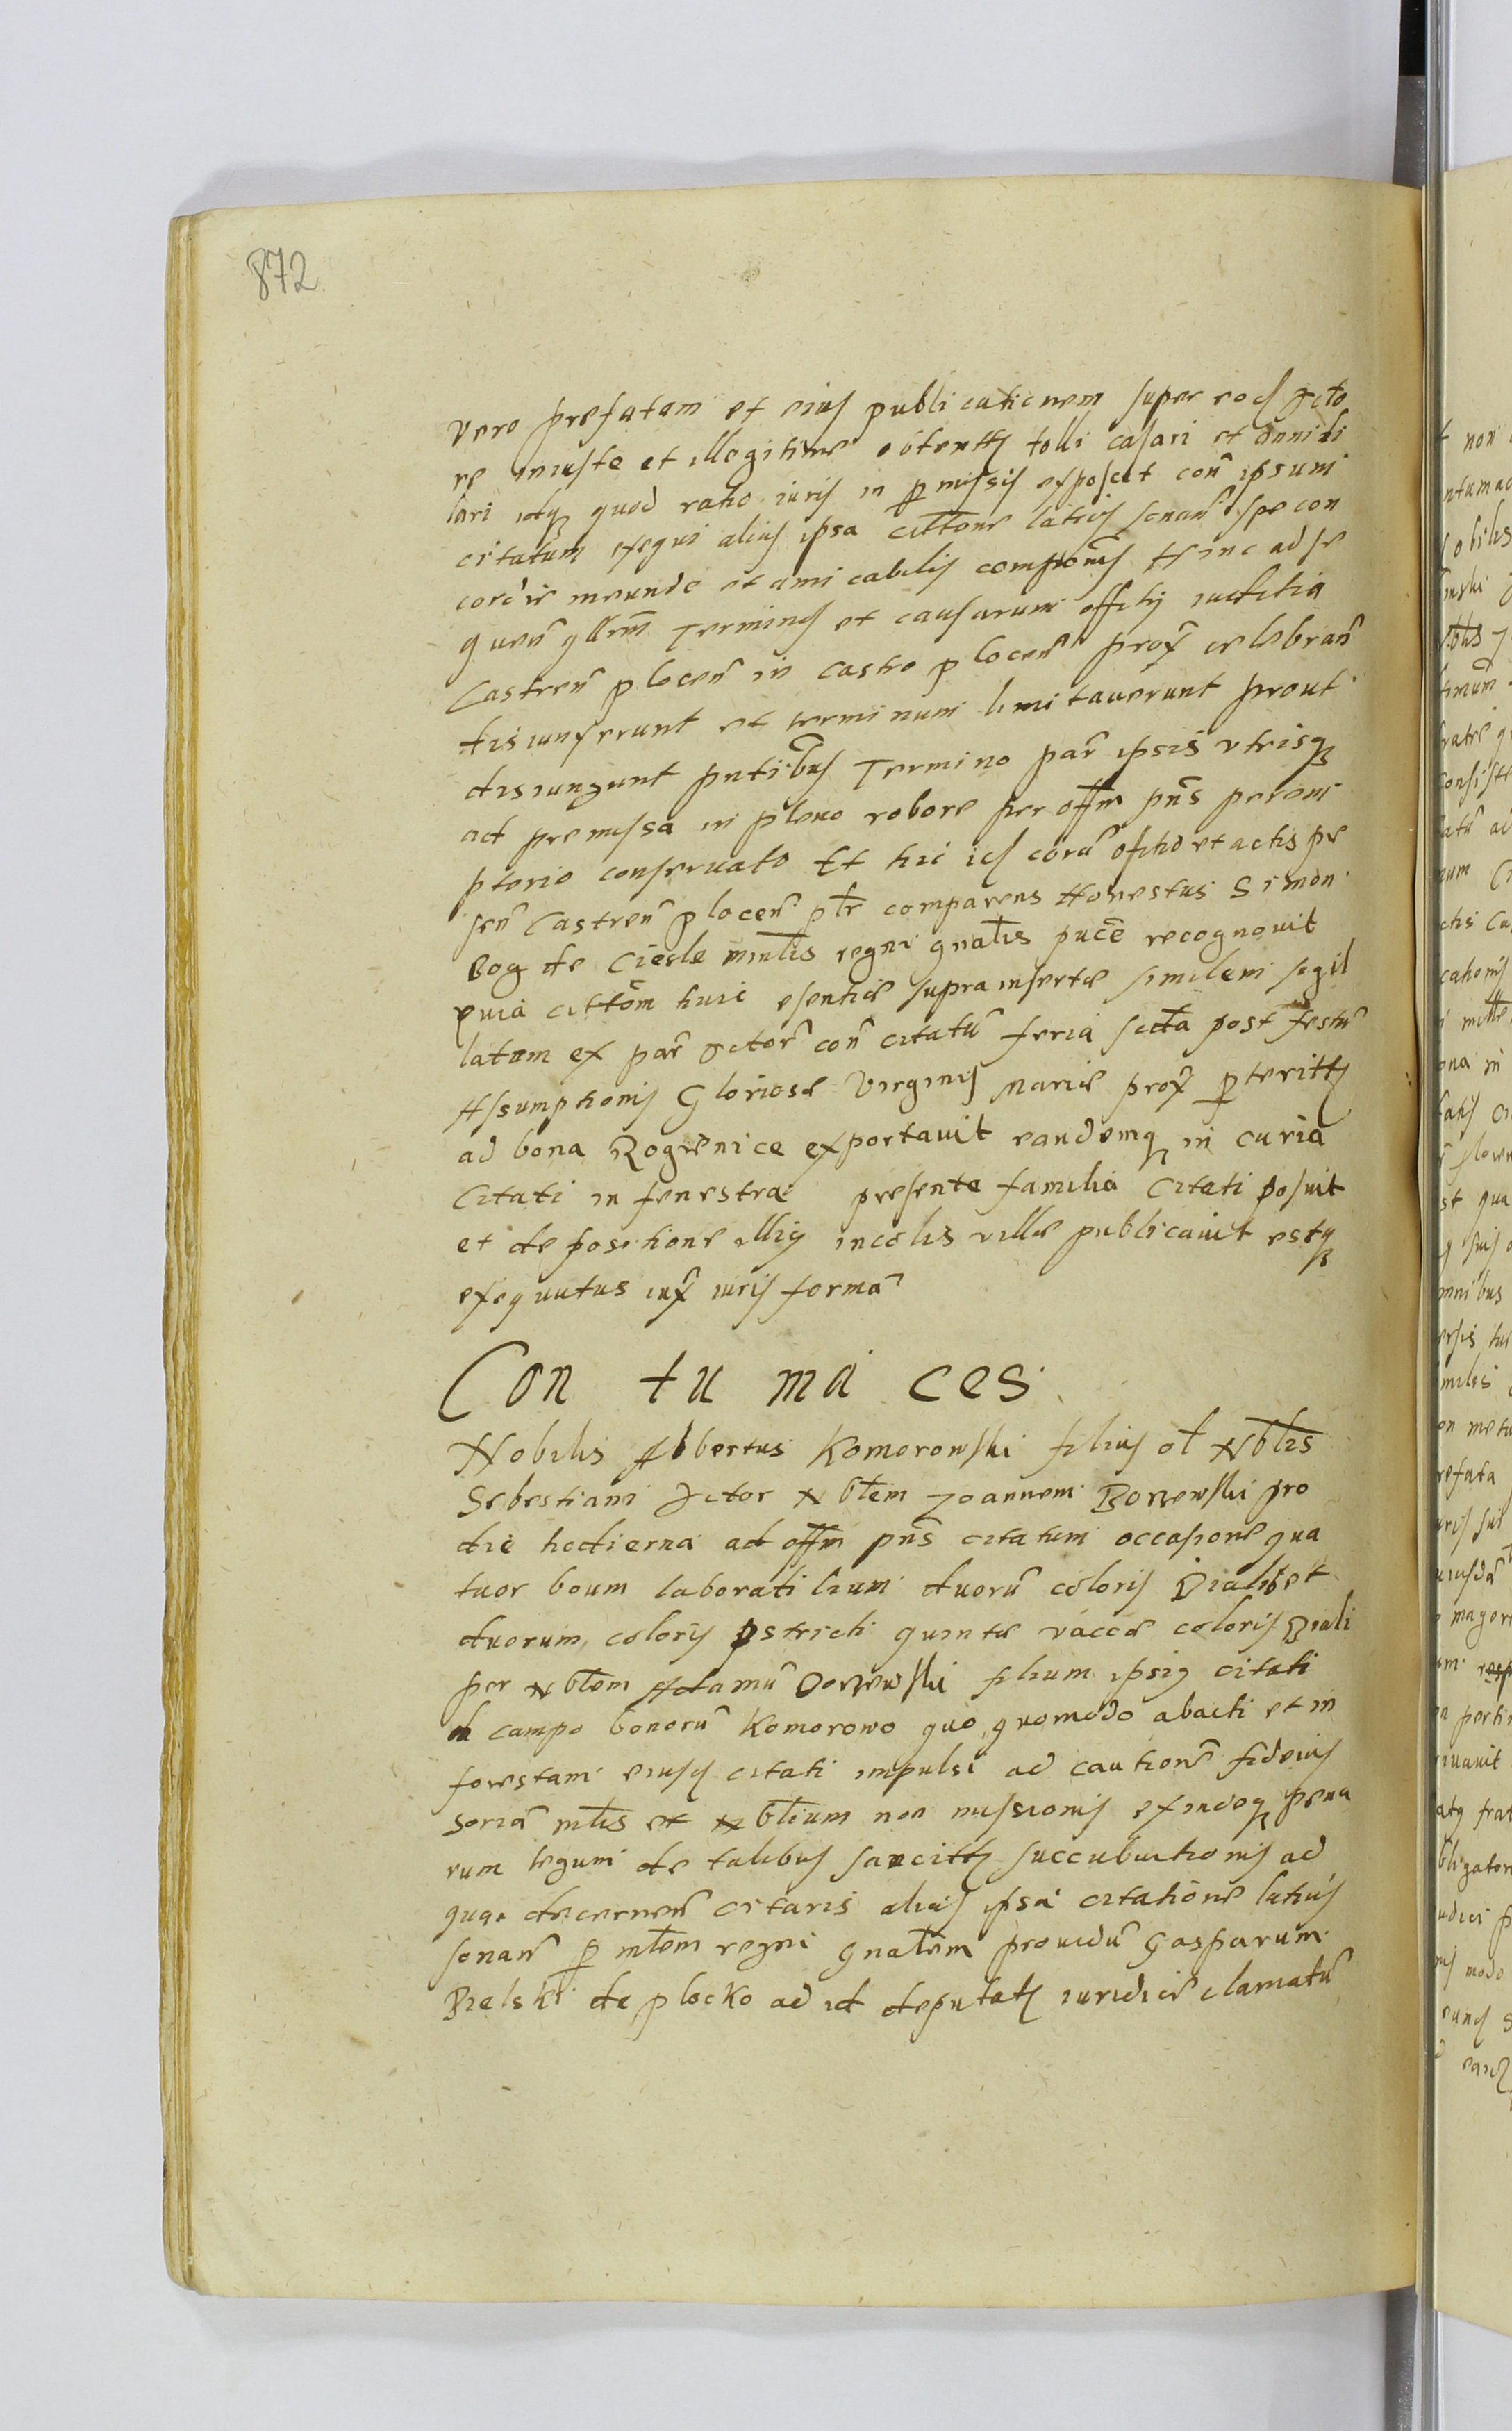 872
vero prefatam et eius publicationem super eod Acto
re iniuste et illegitime obtentas tolli casari et annihi
lari idq quod ratio iuris in p missis exposcit con ipsum
citatum exequi alias ipsa cittone latius sonan Spe con
cordie ineunde et amicabilis compionis Hinc ad se
quen gllem Terminos et causarum officij iudicia
Castren plocen in castro plocen prox celebran
disiunxerunt et terminum limitaverunt prout
disiungunt pntibus Termino par ipsis vtrisq
ad premissa in pleno robore per offm pns perem
ptorio conservato Et hic id coram officio et actis pre
sen Castren plocen plr comparens Honestus Simon
Bog de Ciesle mnlis regni gnalis puce recognovit
quia cittom huic esentie supra inserte similem sigil
latam ex par Actor con citatu feria scda post festu
Assumptionis Gloriose Virginis Marie prox p teritu
ad bona Rogienice exportavit eandemq in curia
Citati in fenestra presente familia Citati posuit
et de positione illius incolis ville publicavit estq
exequutus iux iuris forma
Con tu ma ces
Nobilis Albertus Komorowski filius ol Nblis
Sebestiani Actor Nblem Joannem Borzewski pro
die hodierna ad offm pns citatum occasione qua
tuor boum laboratilium duoru coloris Bialij et
duorum coloris pstrieli quinte vacce coloris Biali
per Nblem Adamu Dorzewski filium ipsius citati
de campo bonoru Komorowo quo quomodo abacti et in
forestam eiusd citati impulsi ad caution fideius
soria mlis et Nblium non missionis exindeq pena
rum legum de talibus sancitas succubuitionis ad
quae decernen citaris alias ipsa citatione latius
sonan p mlem regni gnalem providu Gasparum
Bielski de plocko ad id deputatu iuridice clamatu